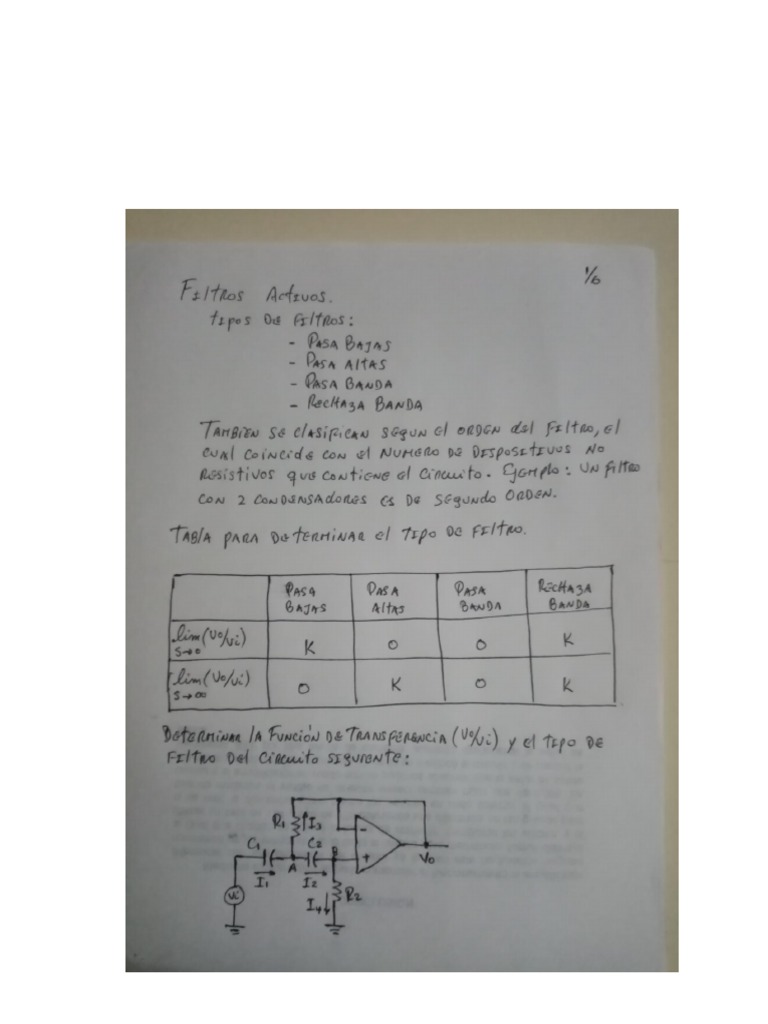 1/6
Filtros Activos.
tipos de filtros:
- Pasa Bajas
- Pasa Altas
- Pasa Banda
- Rechaza Banda
Tambien se clasifican segun el orden del filtro, el
cual coincide con el numero de dispositivos no
resistivos que contiene el circuito. Ejemplo: un filtro
con 2 condensadores es de segundo orden.
Tabla para determinar el tipo de filtro.
Pasa Bajas Pasa Altas Pasa Banda Rechaza Banda
lim (Vo/Vi) s→0 K 0 0 K
lim (Vo/Vi) s→∞ 0 K 0 K
Determinar la Función de Transferencia (Vo/Vi) y el tipo de
filtro del circuito siguiente:
R1 I3
C1 C2 B - +
A Vo
I1 I2
Vi I4 R2